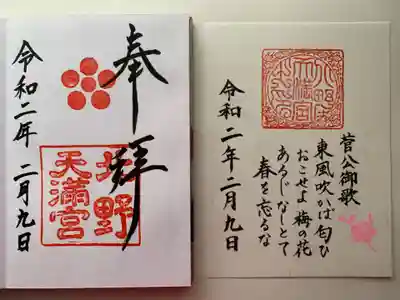 奉拝
北野
天満宮
令和二年 二月九日
菅公御歌
東風吹かば匂ひ
おこせよ梅の花
あるじなしとて
春を忘るな
令和二年二月九日